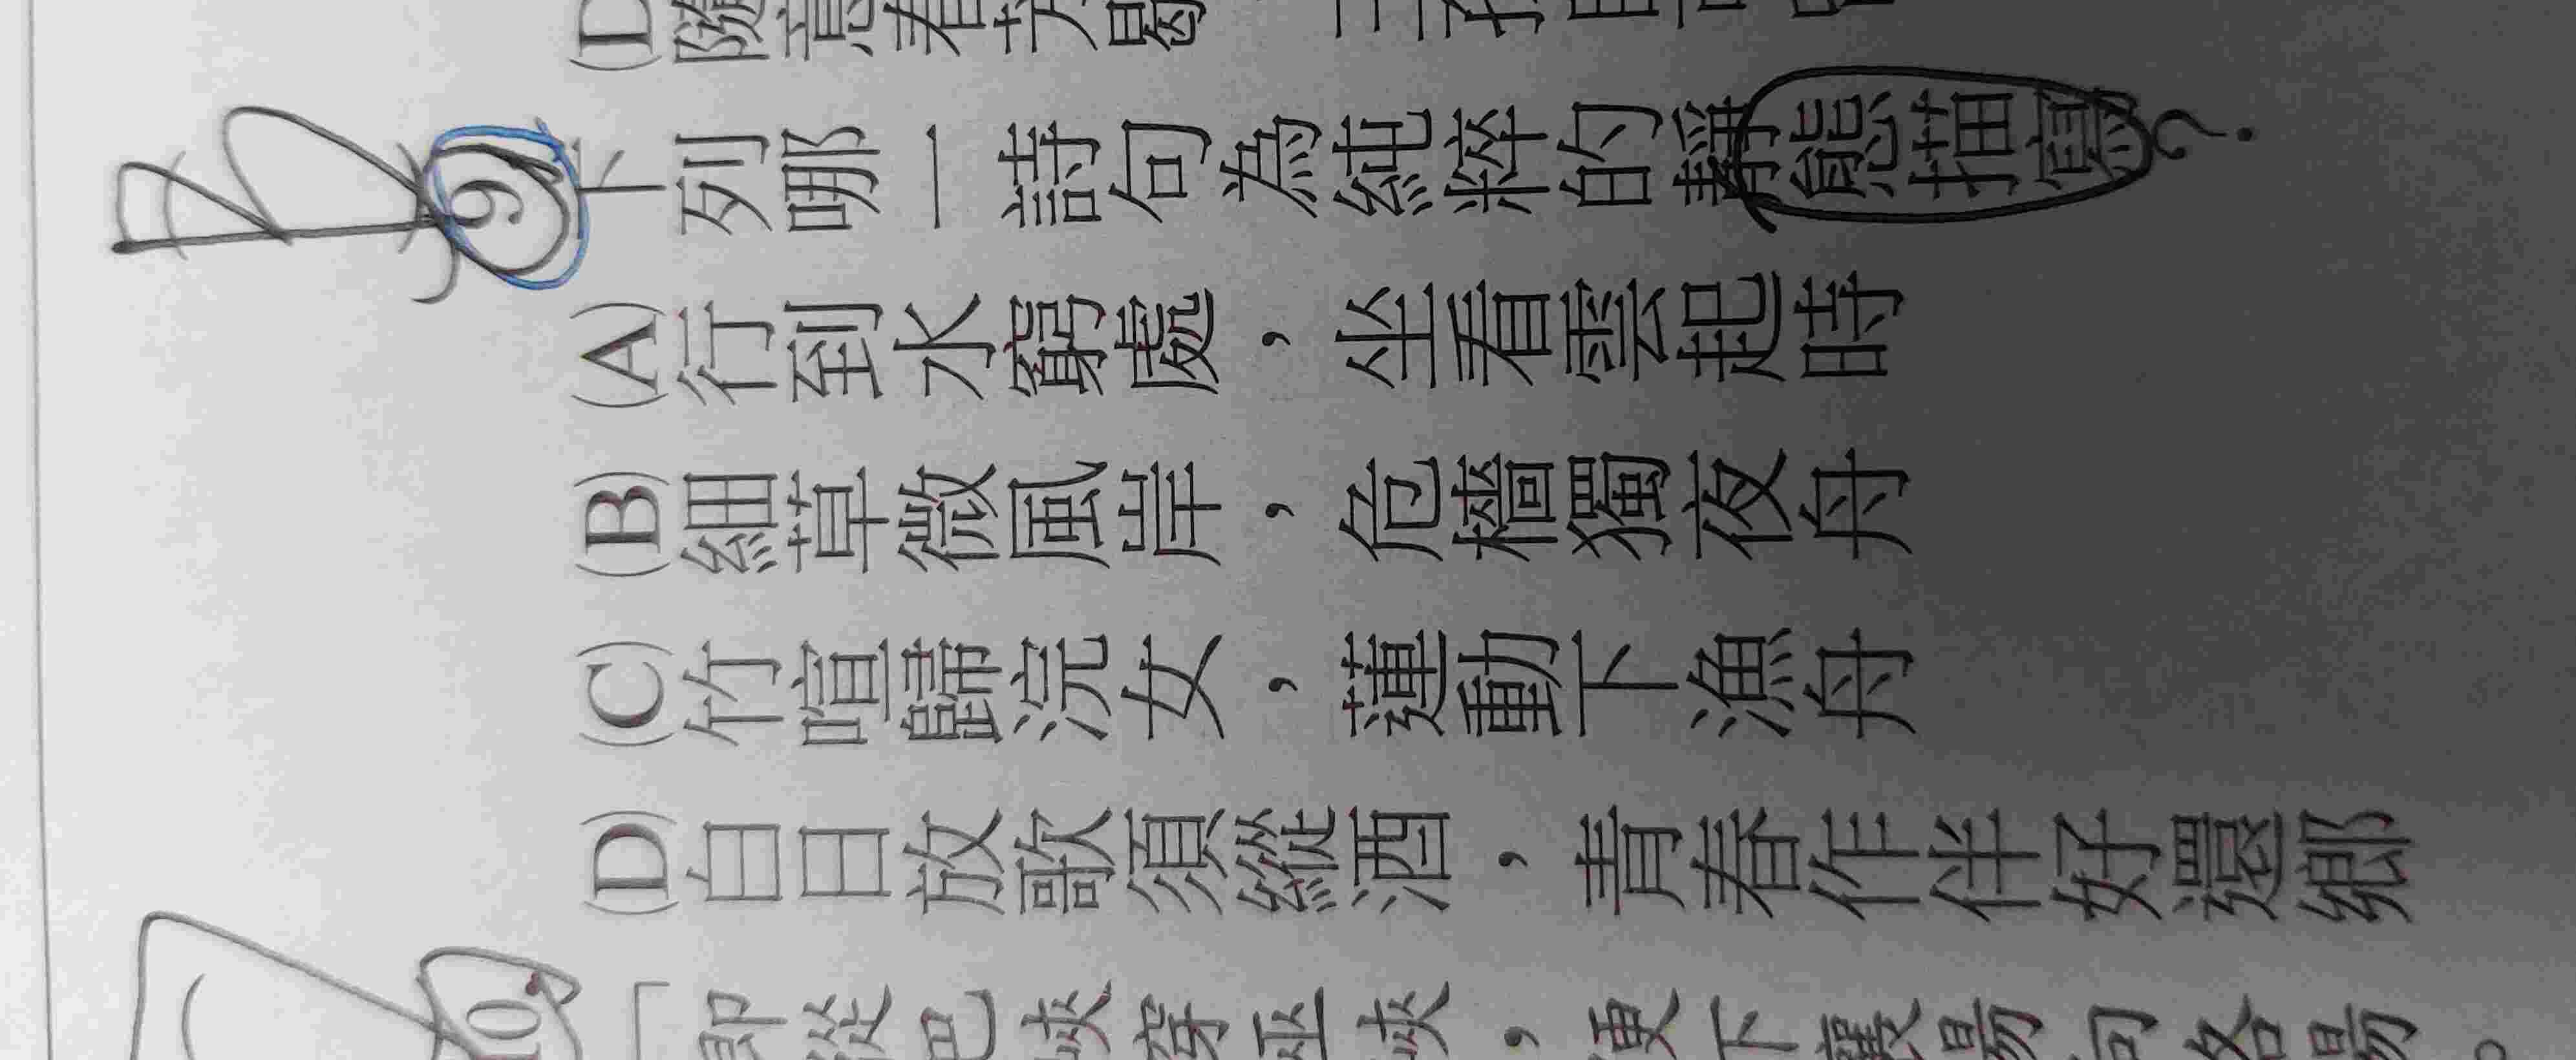 (D 隨意春芳歇，王孫自可留
B
9. 下列哪一詩句為純粹的靜態描寫？
(A) 行到水窮處，坐看雲起時
(B) 細草微風岸，危檣獨夜舟
(C) 竹喧歸浣女，蓮動下漁舟
(D) 白日放歌須縱酒，青春作伴好還鄉
10. 「即從巴峽穿巫峽，便下襄陽向洛陽。